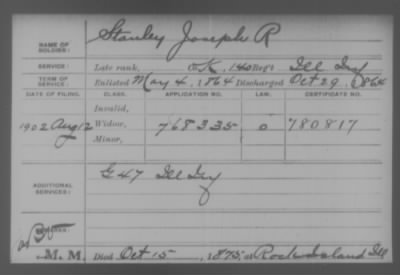 NAME OF SOLDIER: Stanley Joseph R
SERVICE: Late rank, K, 140 Reg't Ill Inf
TERM OF SERVICE: Enlisted May 4, 1864 Discharged Oct 29, 1864
DATE OF FILING. CLASS. APPLICATION NO. LAW. CERTIFICATE NO.
Invalid,
1902 Aug 12 Widow, 768335 0 780817
Minor,
ADDITIONAL SERVICES: G 47 Ill Inf
M. M. Died Oct 15, 1875, at Rock Island Ill